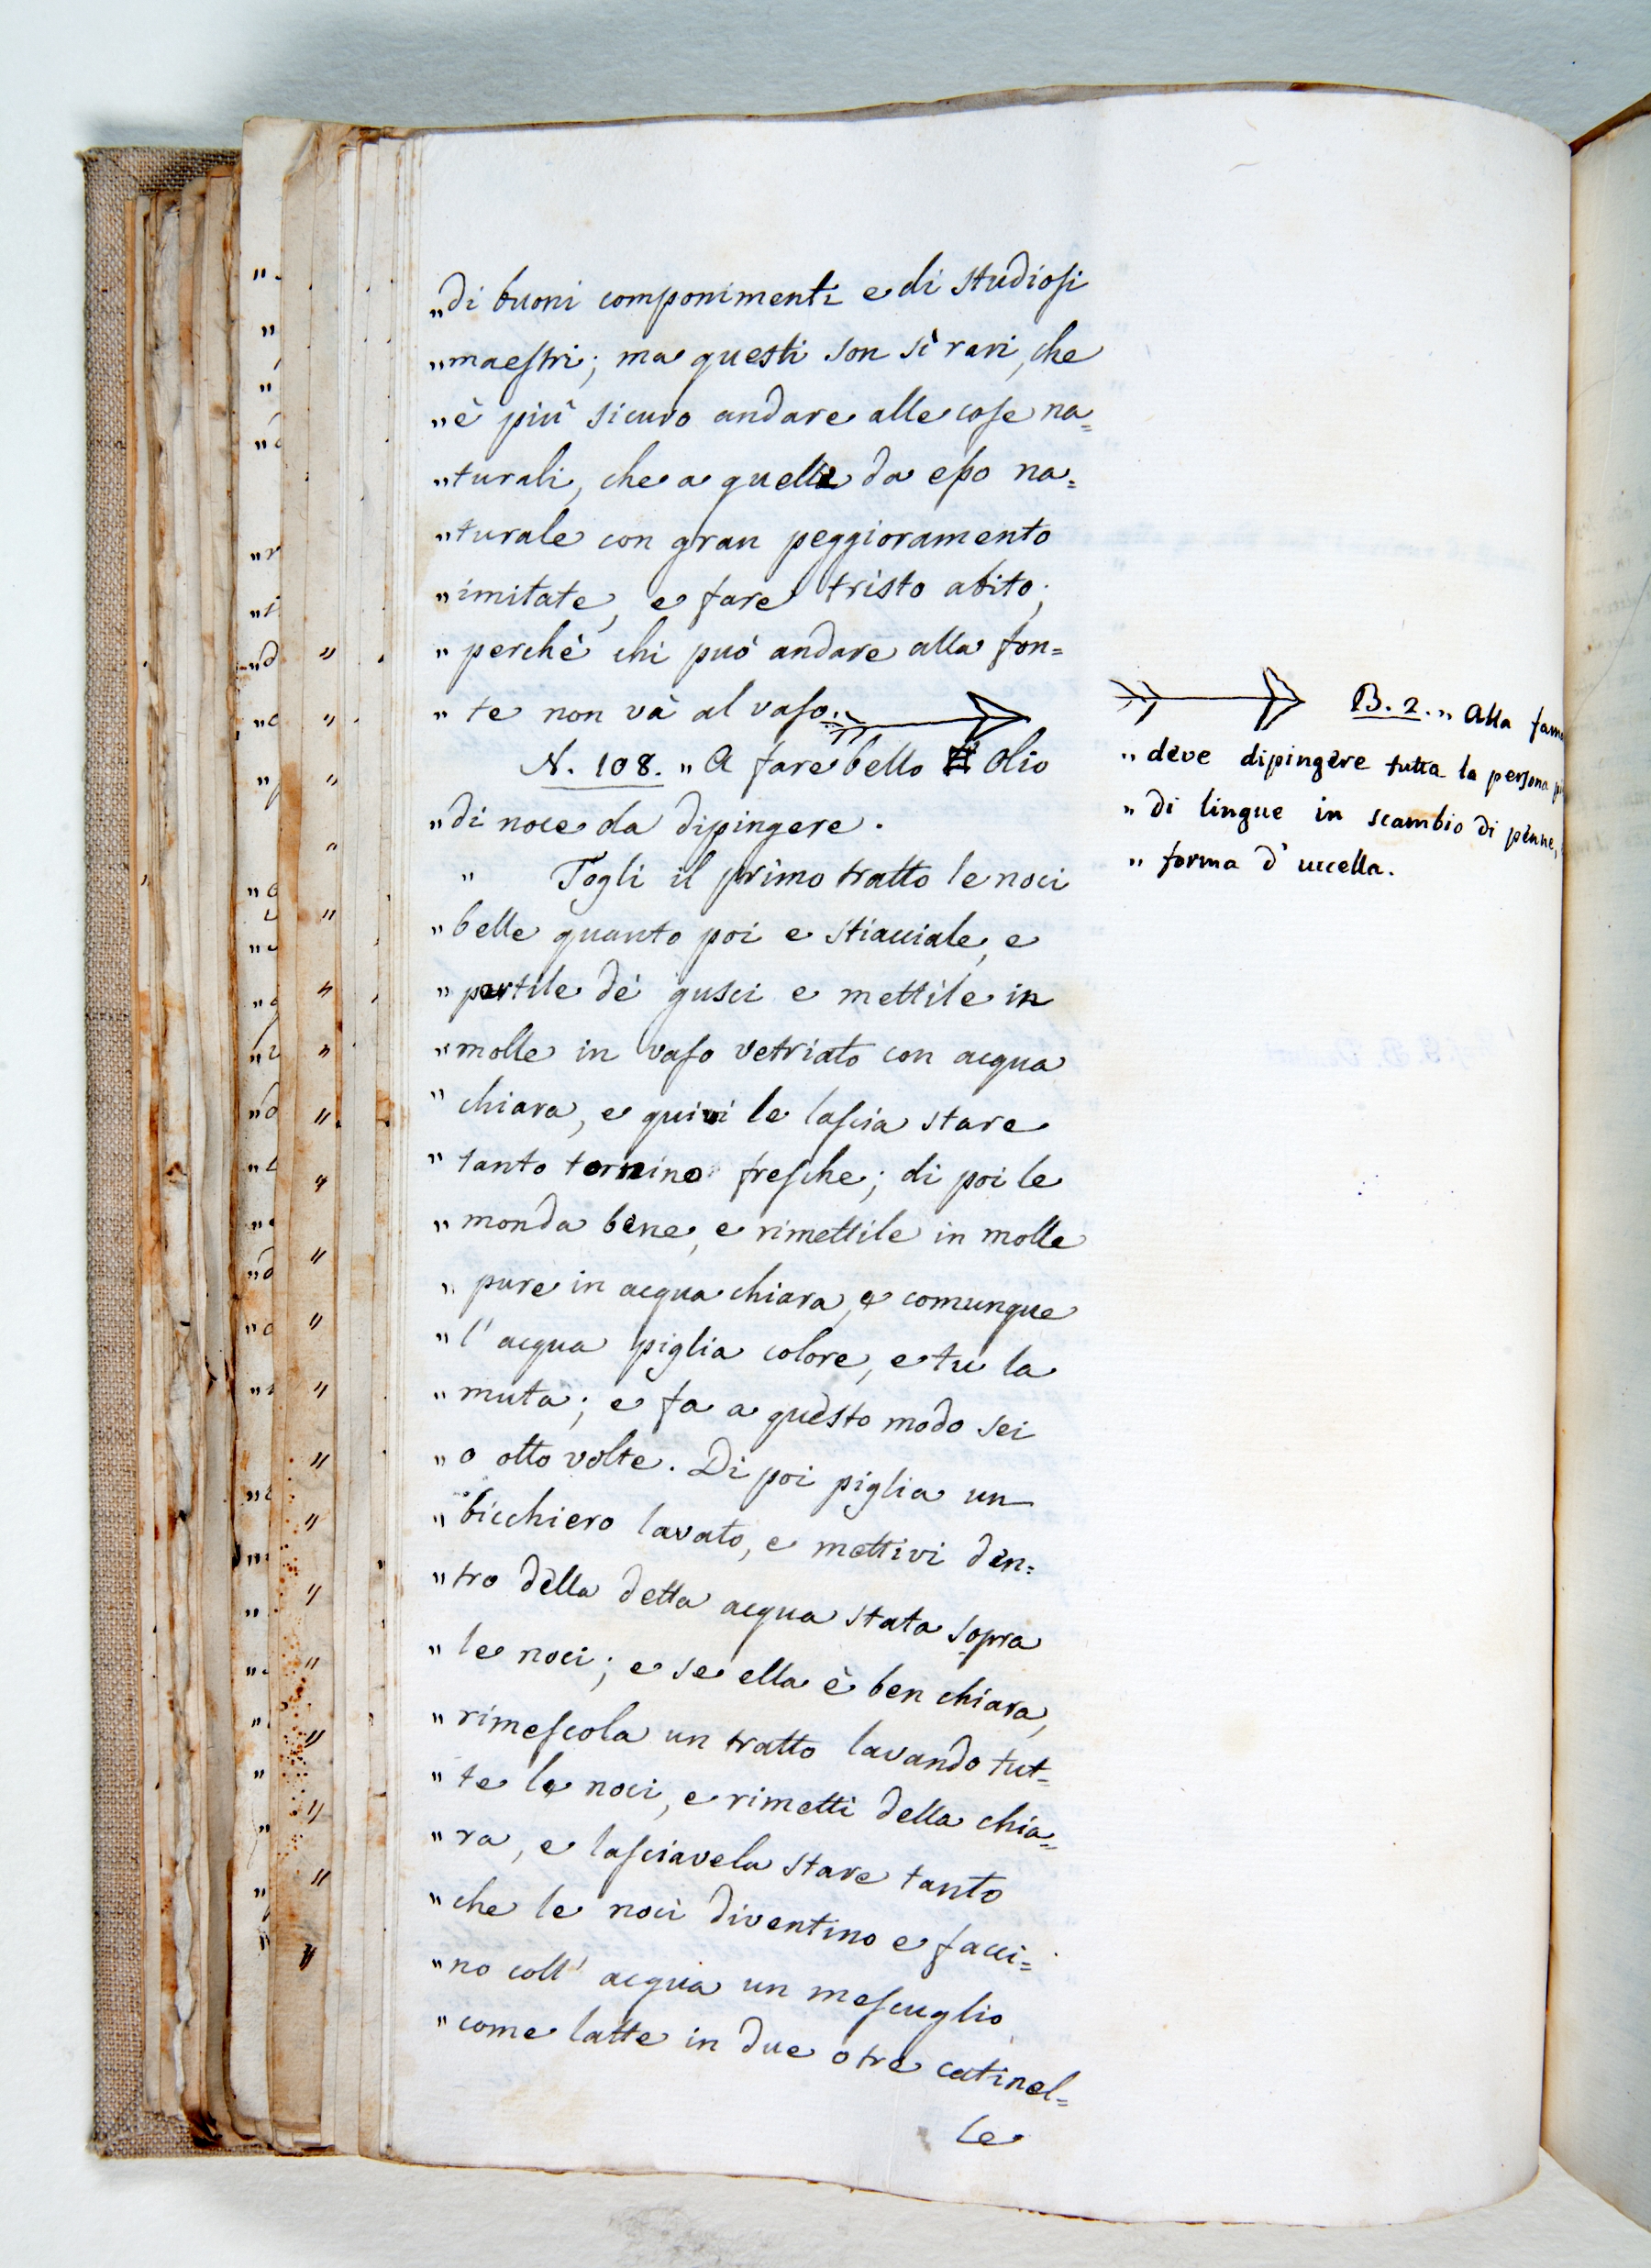 „di buoni componimenti e di studiosi
„maestri; ma questi son sì rari, che
„è più sicuro andare alle cose na=
„turali, che a quelle da esso na=
„turale con gran peggioramento
„imitate, e fare tristo abito;
„perchè chi può andare alla fon=
„te non và al vaso.
N. 108. „A fare bello Olio
„di noce da dipingere.
„Togli il primo tratto le noci
„belle quanto poi e stiacciale, e
„partile dè gusci e mettile in
„molle in vaso vetriato con acqua
„chiara, e quivi le lascia stare
„tanto tornino fresche; di poi le
„monda bene, e rimettile in molle
„pure in acqua chiara, e comunque
„l'acqua piglia colore, e tu la
„muta; e fa a questo modo sei
„o otto volte. Di poi piglia un
„bicchiero lavato, e mettivi den=
„tro della detta acqua stata sopra
„le noci; e se ella è ben chiara,
„rimescola un tratto lavando tut=
„te le noci, e rimetti della chia=
„ra, e lasciavela stare tanto
„che le noci diventino e facci=
„no coll' acqua un mescuglio
„come latte in due o tre catinel=
le
B. 2. „Alla
„deve dipingere tutta la persona
„di lingue in scambio di penne,
„forma d'uccella.